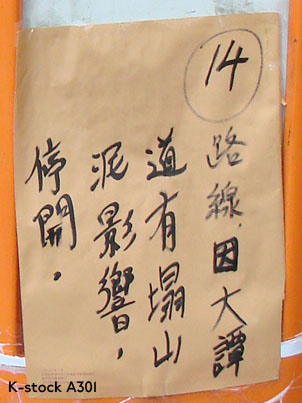 14
路線，因大譚
道有塌山
泥影響，
停開．
K-stock A301